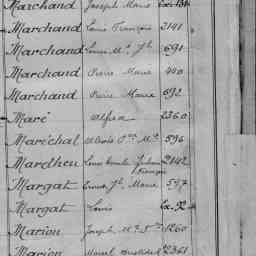 Marchand Joseph Marie Ex. 131
Marchand Louis François 2141
Marchand Louis Mie Jh 691
Marchand Pierre Marie 440
Marchand Pierre Marie 692
Maré Alfred 2360
Maréchal 596
Maredheu Louis 2142
François
Margat Ernest Jh Marie 597
Margat Louis Ex. 92
Marion Joseph 1260
Marion Marcel 2361